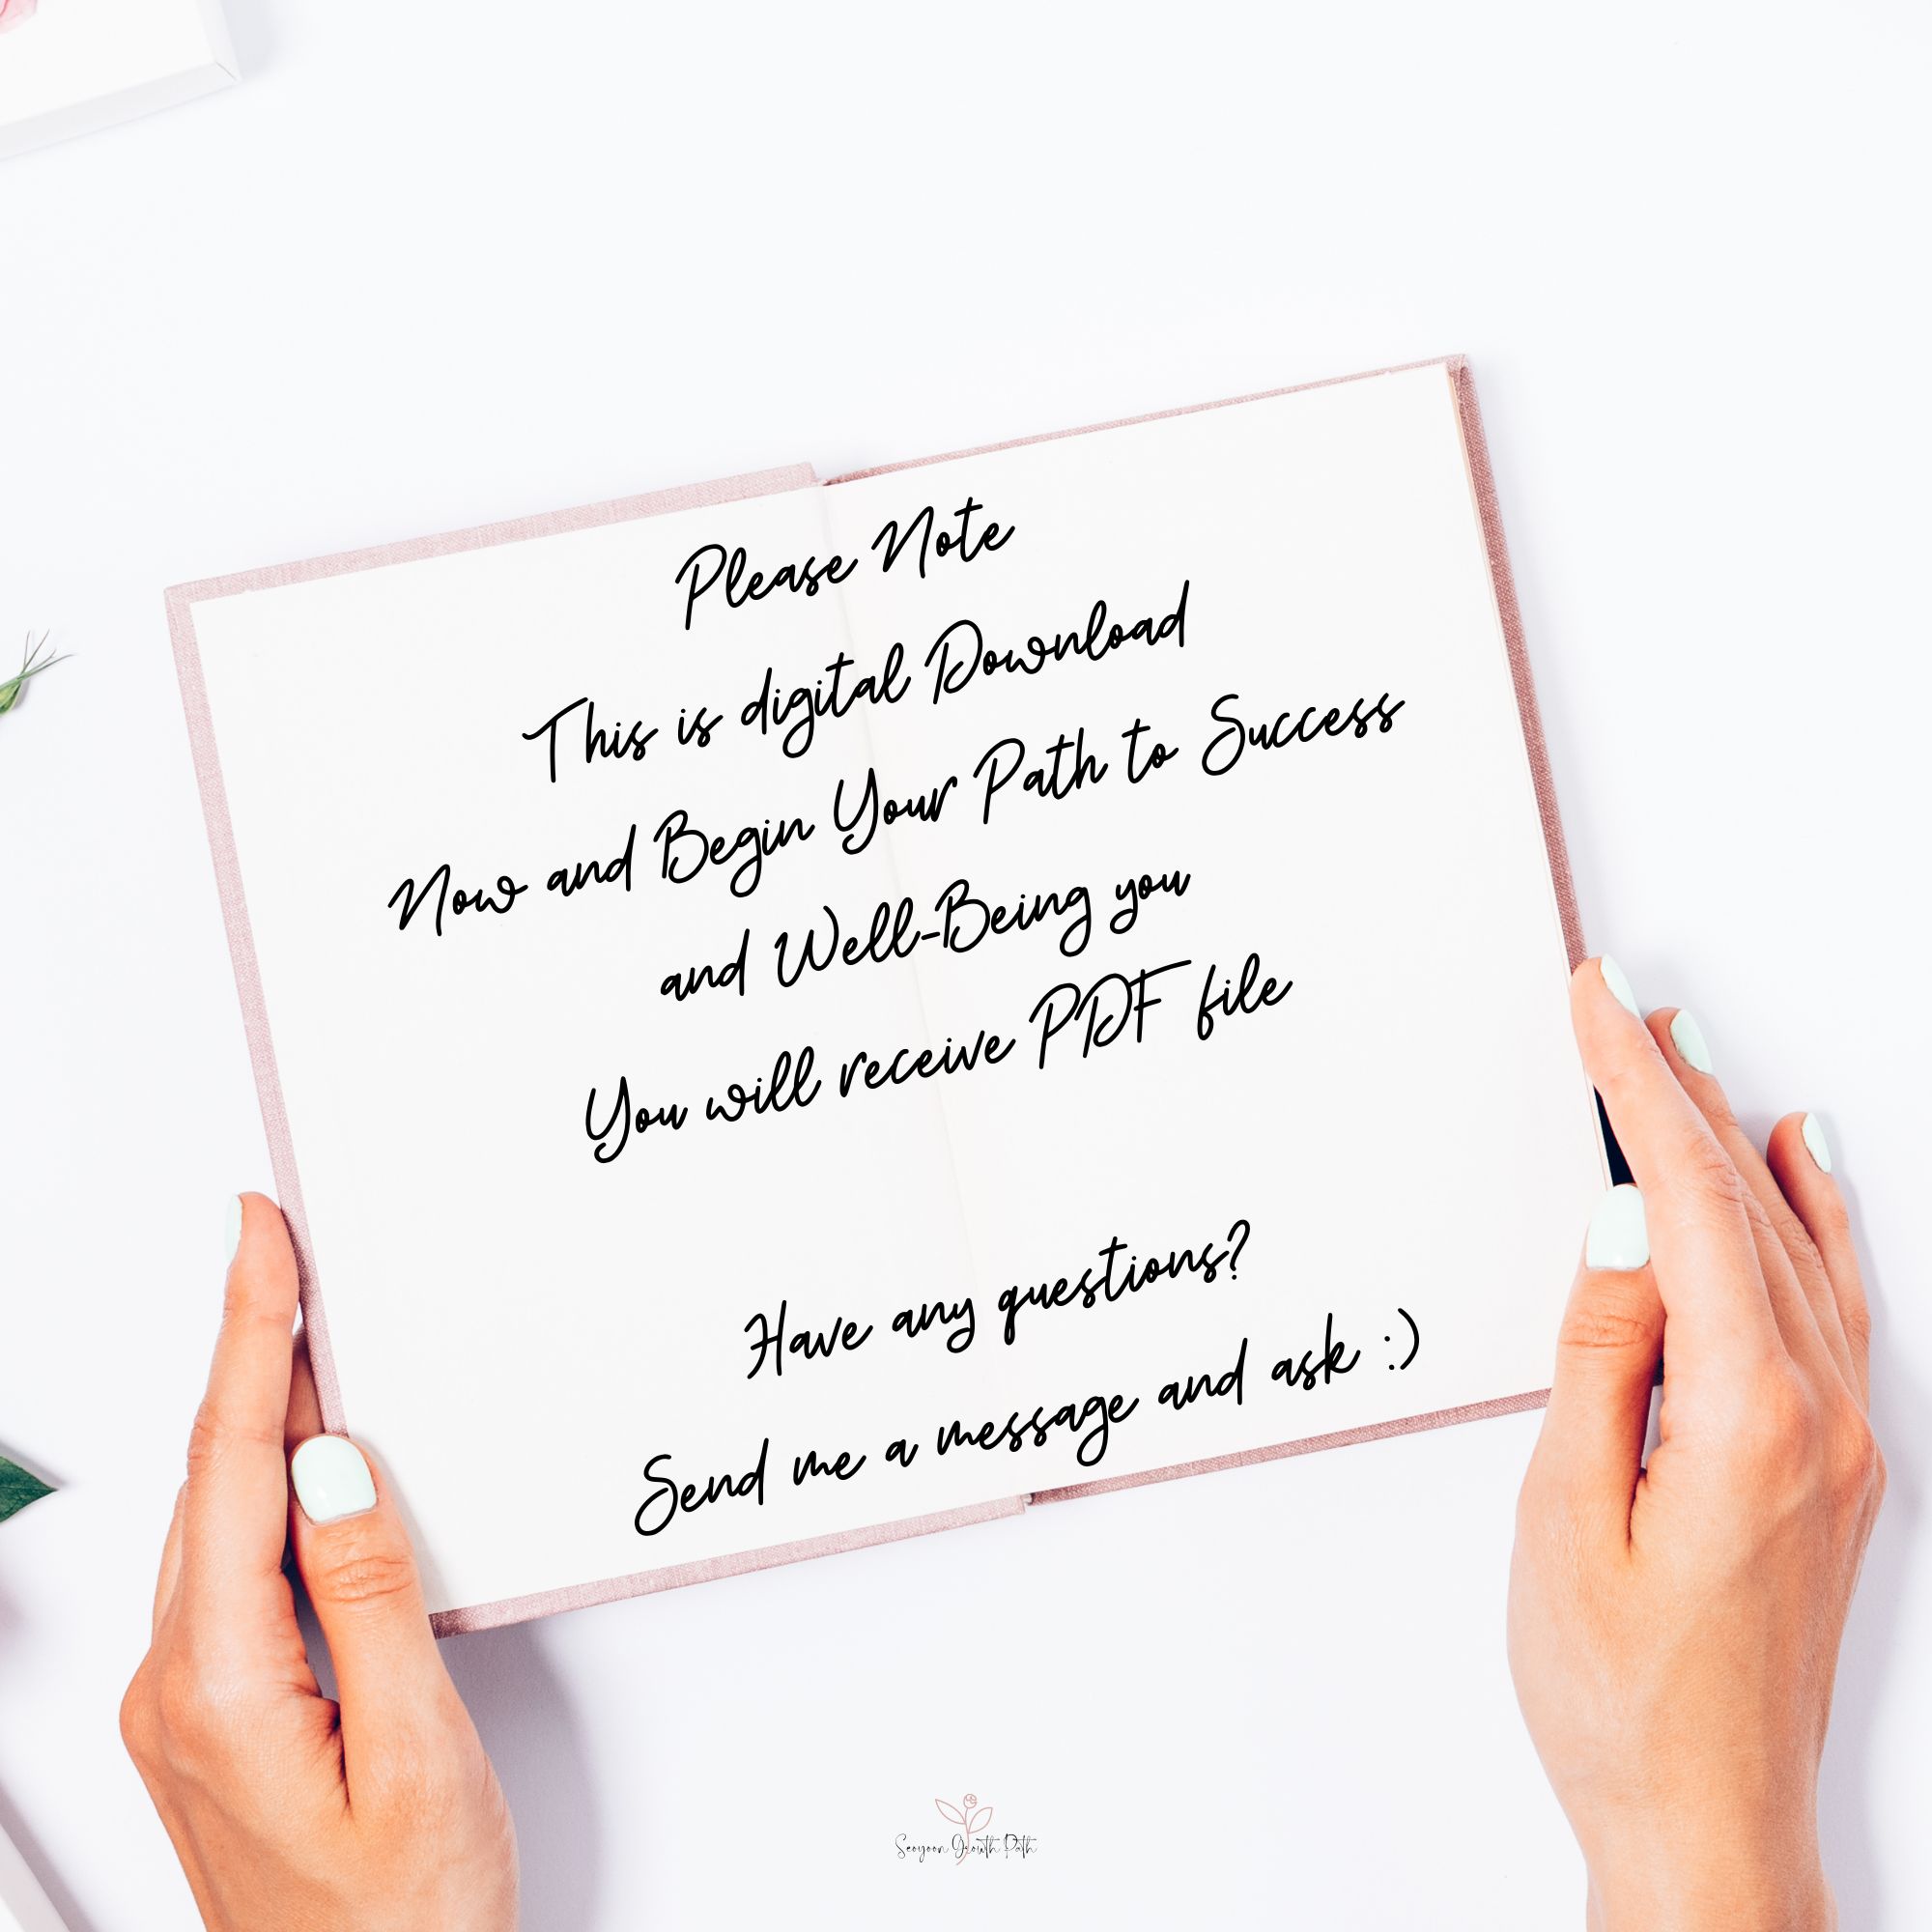 Please Note
This is digital Download
Now and Begin Your Path to Success
and Well-Being you
You will receive PDF file
Have any questions?
Send me a message and ask :)
Seoyoon Growth Path